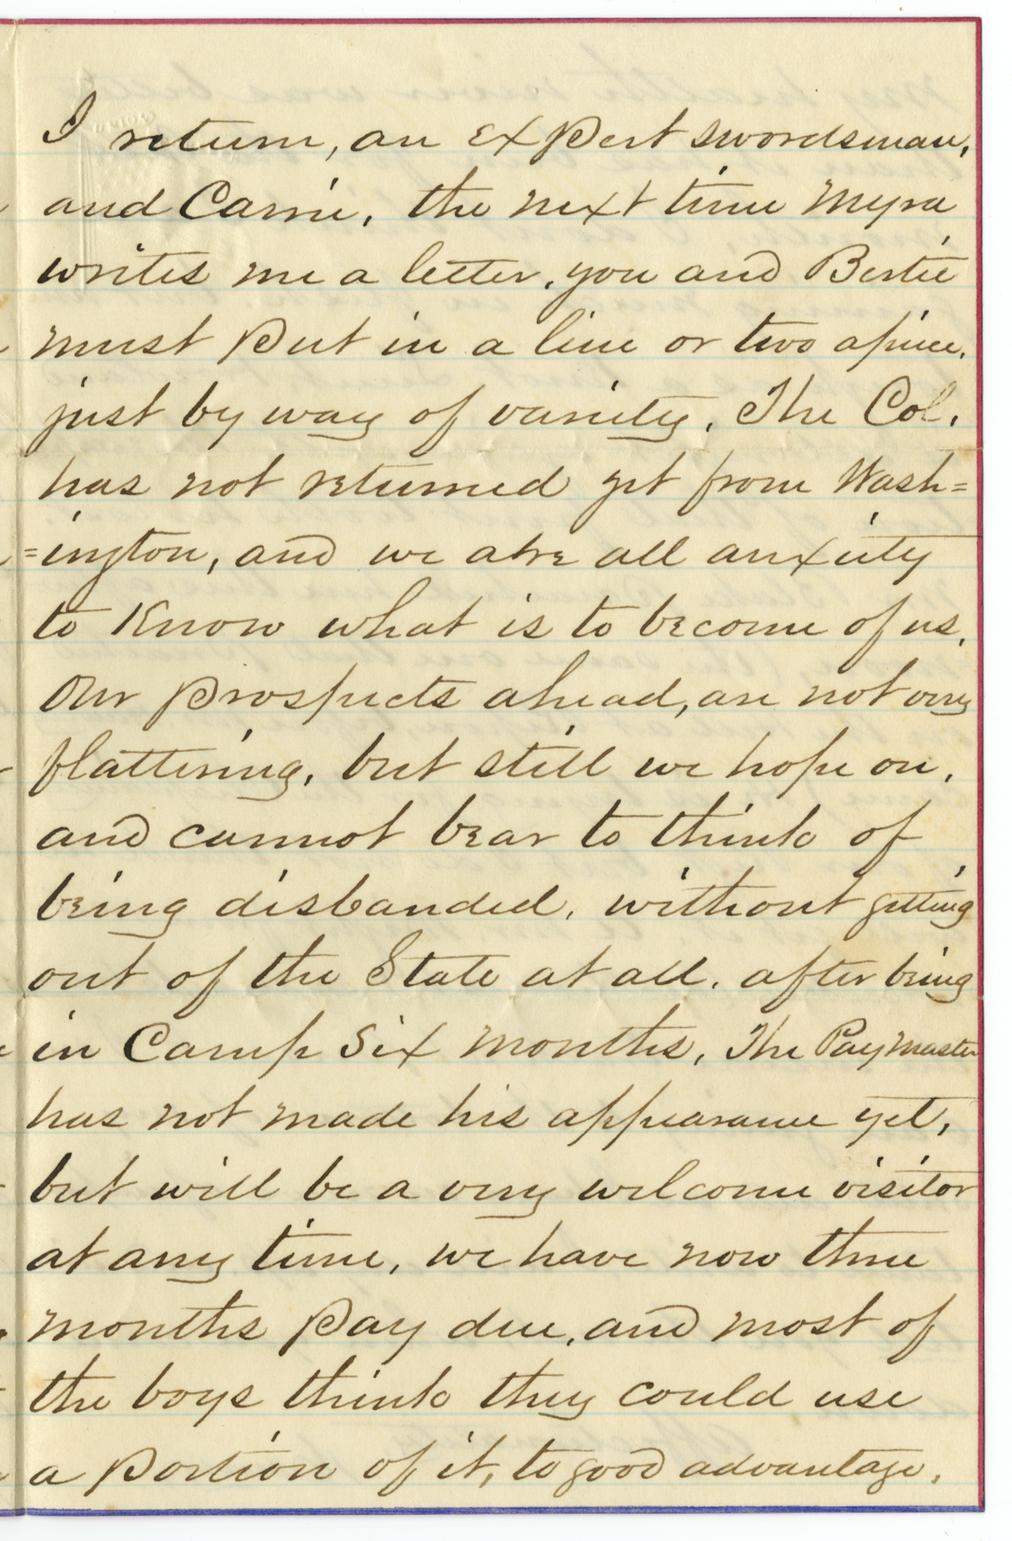 I return, an expert swordsman,
and Carrie, the next time Myra
writes me a letter, you and Bertie
must put in a line or two apiece,
just by way of variety. The Col.
has not returned yet from Wash=
=ington, and we are all anxiety
to know what is to become of us.
Our prospects ahead, are not very
flattering, but still we hope on,
and cannot bear to think of
being disbanded, without getting
out of the State at all, after being
in Camp Six months, The Paymaster
has not made his appearance yet,
but will be a very welcome visitor
at any time, we have now three
months pay due, and most of
the boys think they could use
a portion of it, to good advantage.